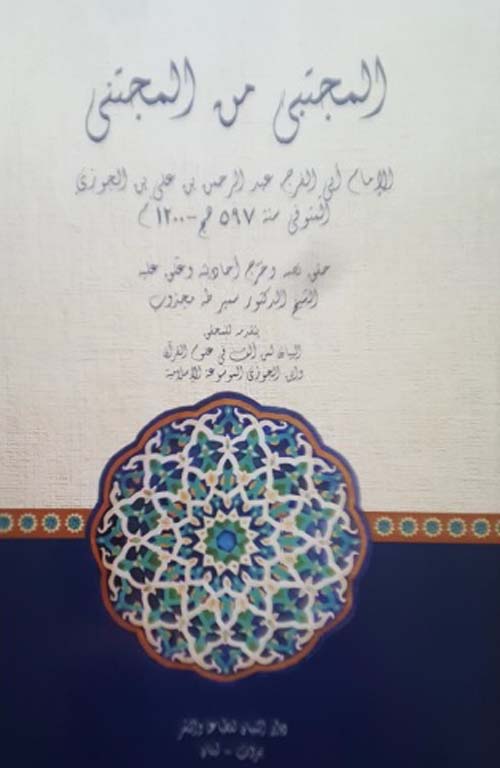 المجتبى من المجتنى
الإمام أبي الفرج عبد الرحمن بن علي بن الجوزي
المتوفى سنة ٥٩٧ هـ - ١٢٠٠ م
حقق نصه وخرج أحاديثه وعلق عليه
الشيخ الدكتور سمير طه مجذوب
يتقدمه للمحقق
البيان لمن ألف في علوم القرآن
وابن الجوزي الموسوعة الإسلامية
للطباعة والنشر
بيروت - لبنان